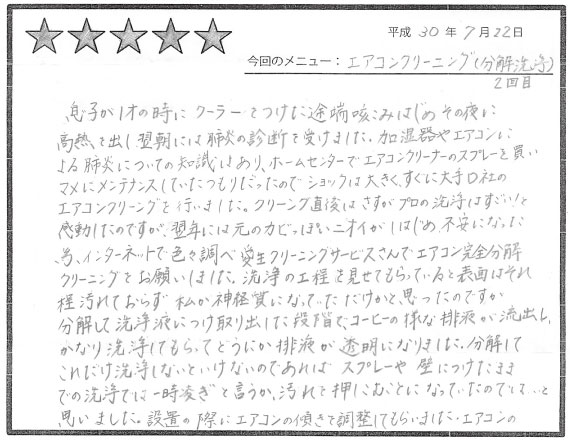 平成 30 年 7 月 22 日
今回のメニュー：エアコンクリーニング(分解洗浄)
2回目
息子が1才の時にクーラーをつけた途端咳こみはじめその夜に
高熱を出し翌朝には肺炎の診断を受けました。加湿器やエアコンに
よる肺炎についての知識はあり、ホームセンターでエアコンクリーナーのスプレーを買い
マメにメンテナンスしていたつもりだったのでショックは大きく、すぐに大手D社の
エアコンクリーニングを行いました。クリーニング直後はさすがプロの洗浄はすごい!と
感動したのですが、翌年には元のカビっぽいニオイがしはじめ、不安になった
為、インターネットで色々調べ愛生クリーニングサービスさんでエアコン完全分解
クリーニングをお願いしました。洗浄の工程を見せてもらっていると表面はそれ
程汚れておらず私が神経質になっていただけかと思ったのですが
分解して洗浄液につけ取り出した段階で、コーヒーの様な排液が流出し、
かなり洗浄してもらってどうにか排液が透明になりました。分解して
これだけ洗浄しないといけないのであればスプレーや壁につけたまま
での洗浄では一時凌ぎと言うか、汚れを押しこむことになっていたのでは…と
思いました。設置の際にエアコンの傾きを調整してもらいました。エアコンの